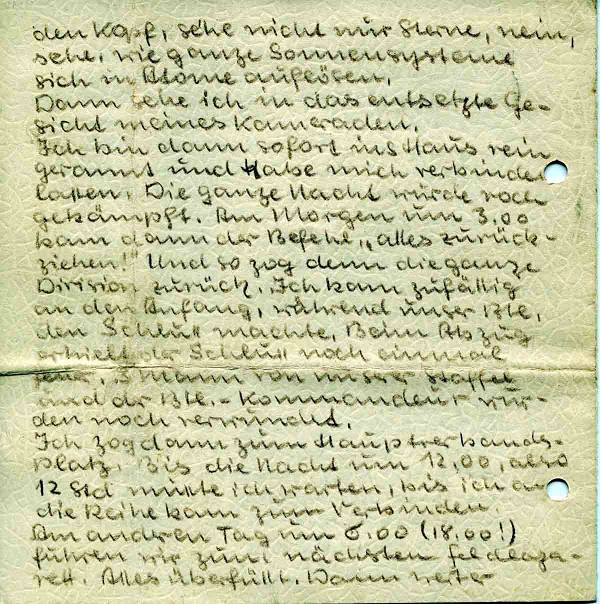 den Kopf, sehe nicht nur Sterne, nein,
sehe, wie ganze Sonnensysteme
sich in Atome auflösen.
Dann sehe ich in das entsetzte Ge-
sicht meines Kameraden.
Ich bin dann sofort ins Haus rein
gerannt und habe mich verbinden
lassen. Die ganze Nacht wurde noch
gekämpft. Am Morgen um 3.00
kam dann der Befehl, „alles zurück-
ziehen!" Und so zog denn die ganze
Division zurück. Ich kam zufällig
an den Anfang, während unser Btl.
den Schluß machte. Beim Abzug
erhielt der Schluß noch einmal
Feuer. 3 Mann von unserer Staffel
und der Btl.-Kommandeur wur-
den noch verwundet.
Ich zog dann zum Hauptverbands-
platz. Bis die Nacht um 12.00, also
12 Std mußte ich warten, bis ich an
die Reihe kam zum Verbinden.
Am anderen Tag um 6.00 (18.00!)
fuhren wir zum nächsten Feldlaza-
rett. Alles überfüllt. Dann weiter